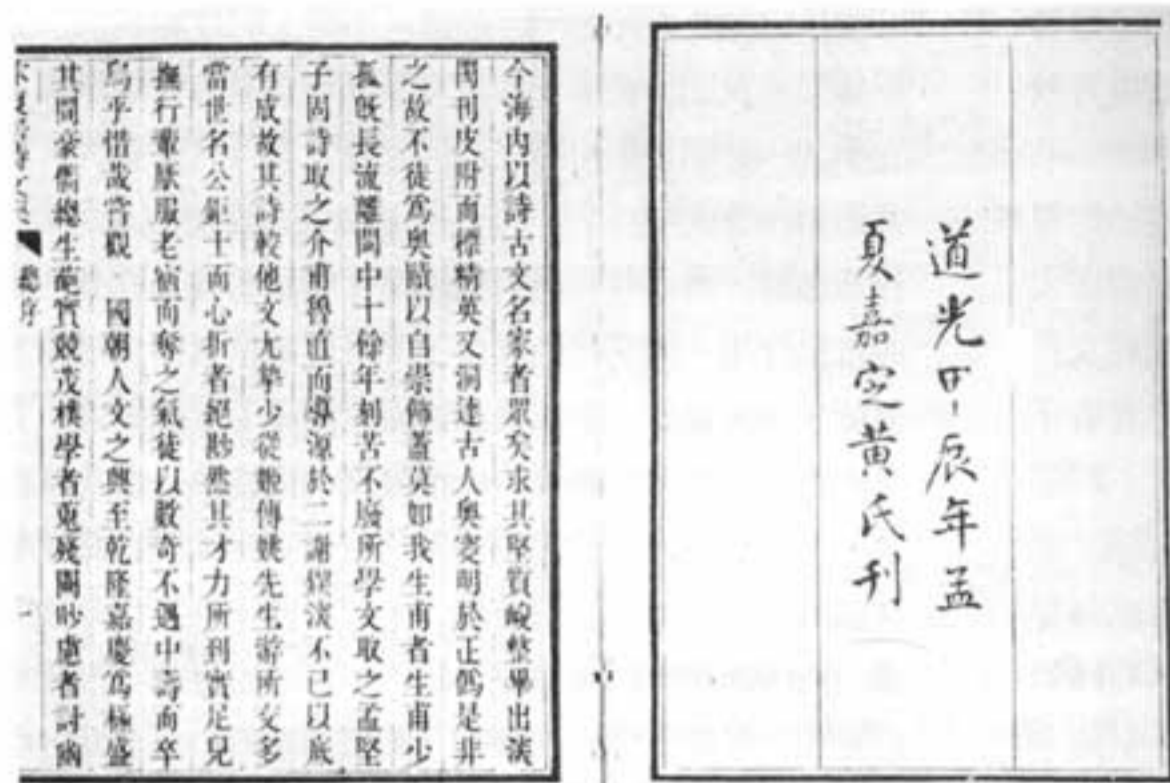 道光甲辰年孟
夏嘉定黄氏刊
今海内以詩古文名家者眾矣求其堅實峻整畢出淡
閎刊皮附而標精英又洞達古人奧窔明於正僞是非
之故不徒爲奧賾以自崇飾蓋莫如我生甫者生甫少
孤既長流離閩中十餘年刻苦不廢所學文取之孟堅
子固詩取之介甫魯直而導源於二謝鍥淡不已以底
有成故其詩較他文尤摯少從姬傳姚先生游所交多
當世名公鉅士而心折者絕尠然其才力所到實足兄
撫行輩厭服老宿而奪之氣徒以數奇不遇中壽而卒
烏乎惜哉嘗觀 國朝人文之興至乾隆嘉慶爲極盛
其閒豪儁總生葩實競茂樸學者蒐殘闕眇慮者討幽
總序
一